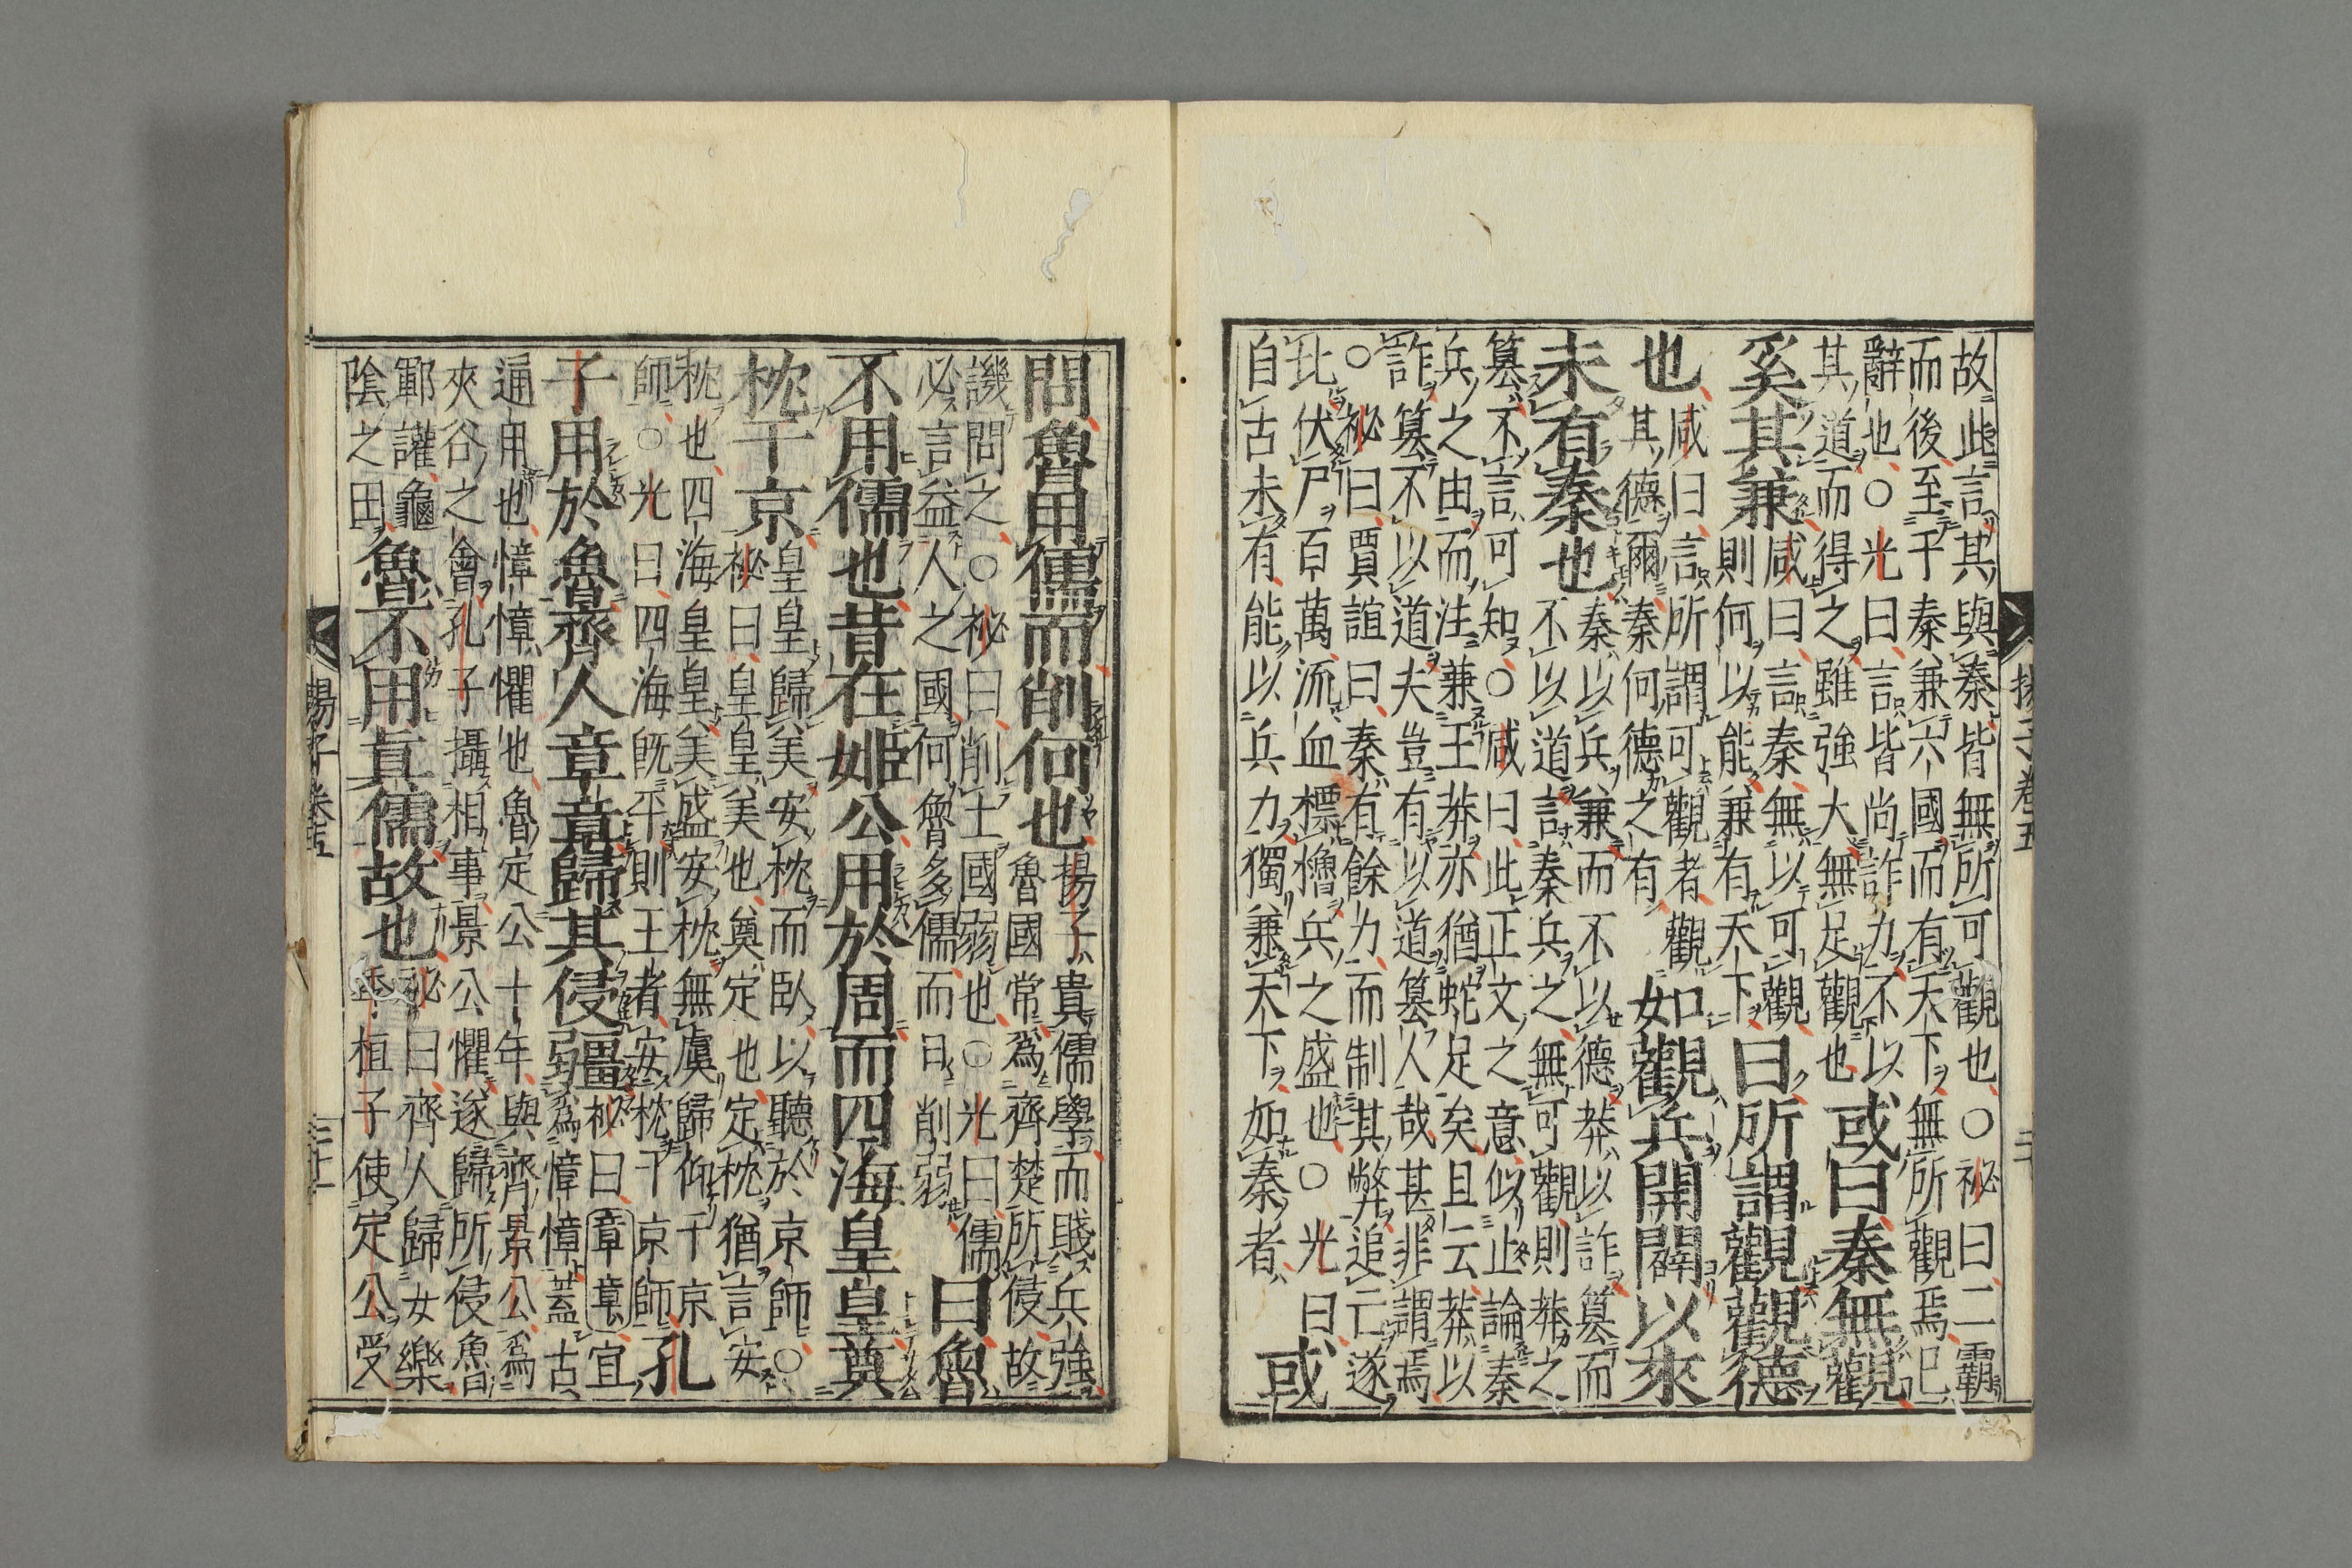 故此言其與秦皆無所可觀也○祕曰二霸
而後至于秦兼六國而有天下無所觀焉已
辭也○光曰言皆尚詐力不以
其道而得之雖強大無足觀也
或曰秦無觀
奚其兼
咸曰言秦無以可觀
則何以能兼有天下
曰所謂觀觀德
也
咸曰言所謂可觀者觀
其德爾秦何德之有
如觀兵開闢以來
未有秦也
秦以兵兼而不以德莽以詐篡而
不以道言秦兵之無可觀則莽之
篡不言可知○咸曰此正文之意似止論秦
兵之由而注兼王莽亦猶蛇足矣且云莽以
詐篡不以道夫豈有以道篡人哉甚非謂焉
○祕曰賈誼曰秦有餘力而制其弊追亡遂
北伏尸百萬流血標櫓兵之盛也○光曰
自古未有能以兵力獨兼天下如秦者
或
問魯用儒而削何也
揚子貴儒學而賤兵強
魯國常爲齊楚所侵故
譏問之○祕曰削土國弱也○光曰儒
必言益人之國何魯多儒而日削弱
曰魯
不用儒也昔在姬公用於周而四海皇皇奠
枕于京
皇皇歸美安枕而臥以聽於京師○
祕曰皇皇美也奠定也定枕猶言安
枕也四海皇皇美盛安枕無虞歸仰于京
師○光曰四海旣平則王者安枕于京師
孔
子用於魯齊人章章歸其侵疆
祕曰章章宜
爲慞慞蓋古
遍用也慞慞懼也魯定公十年與齊景公爲
夾谷之會孔子攝相事景公懼遂歸所侵魯
鄆讙龜
陰之田
魯不用真儒故也
祕曰齊人歸女樂
桓子使定公受
揚子卷五